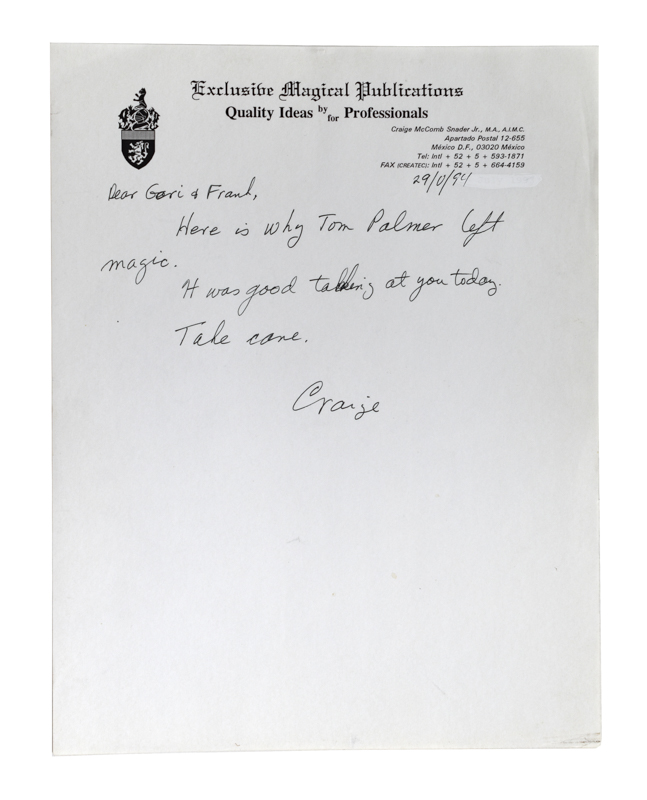 Exclusive Magical Publications
Quality Ideas by for Professionals
Craige McComb Snader Jr., M.A., A.I.M.C.
Apartado Postal 12-655
México D.F., 03020 México
Tel: Intl + 52 + 5 + 593-1871
FAX (CREATEC): Intl + 52 + 5 + 664-4159
Dear Geri & Frank,
Here is why Tom Palmer left
magic.
It was good talking at you today.
Take care.
Craige